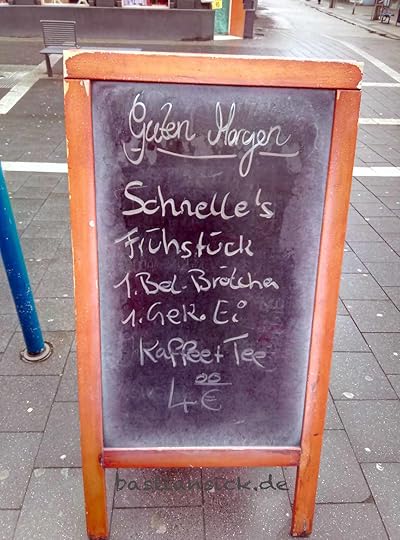 Guten Morgen
Schnelle's
Frühstück
1. Bel. Brötchen
1. Gek. Ei
Kaffee + Tee
4 00 €
bastiansick.de